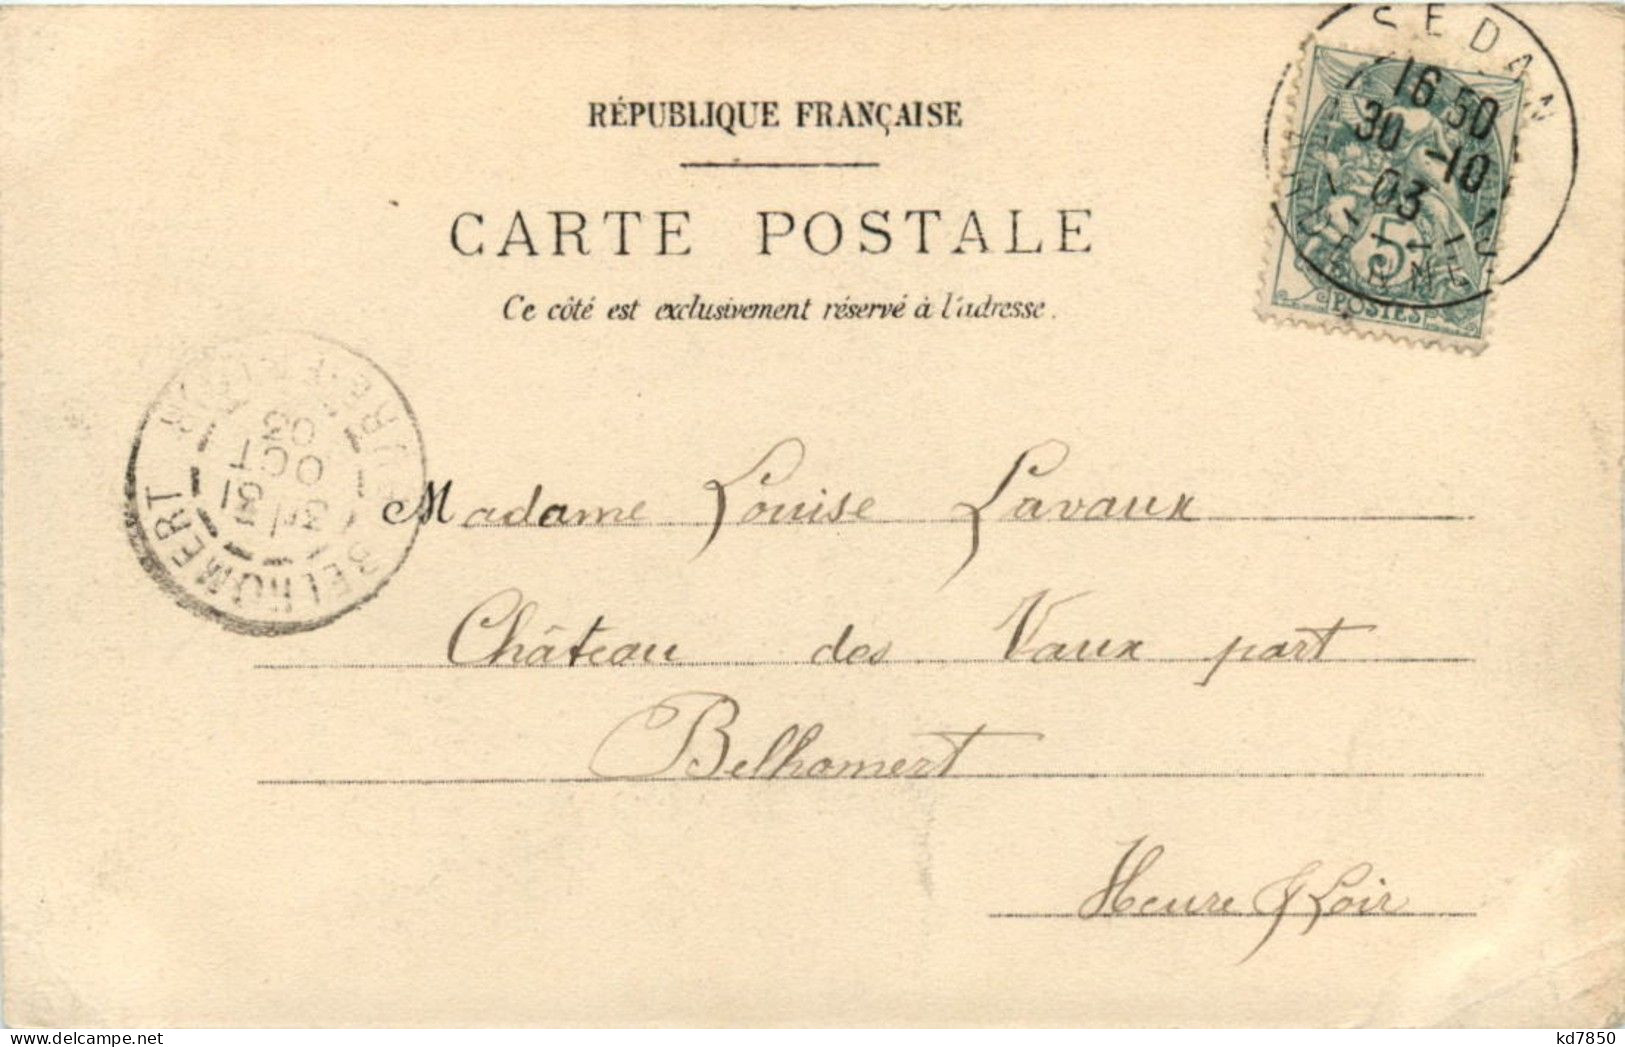 RÉPUBLIQUE FRANÇAISE
CARTE POSTALE
Ce côté est exclusivement réservé à l'adresse.
SEDAN
16 50
30 -10
03
5
POSTES
BELHOMERT
31
OCT
03
Madame Louise Lavaux
Château des Vaux part
Belhomert
Heure & Loir
kd7850